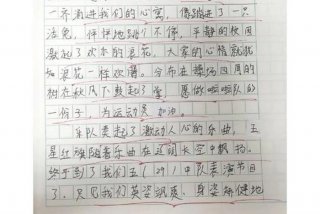 一齐涌进我们的心窝，像蹦进了一只
活兔，怦怦地跳个不停，平静的校园
激起了欢乐的浪花，大家的心情就犹
如浪花一样欢腾。分布在操场四周的
树在秋风下鼓起了掌，愿做啦啦队的
一份子，为运动员加油。
车队奏起了激动人心的乐曲，五
星红旗随音乐曲在这朗长空中飘扬。
终于到了我们五（29）中队表演节目
了，只见我们英姿飒爽，身姿矫健地